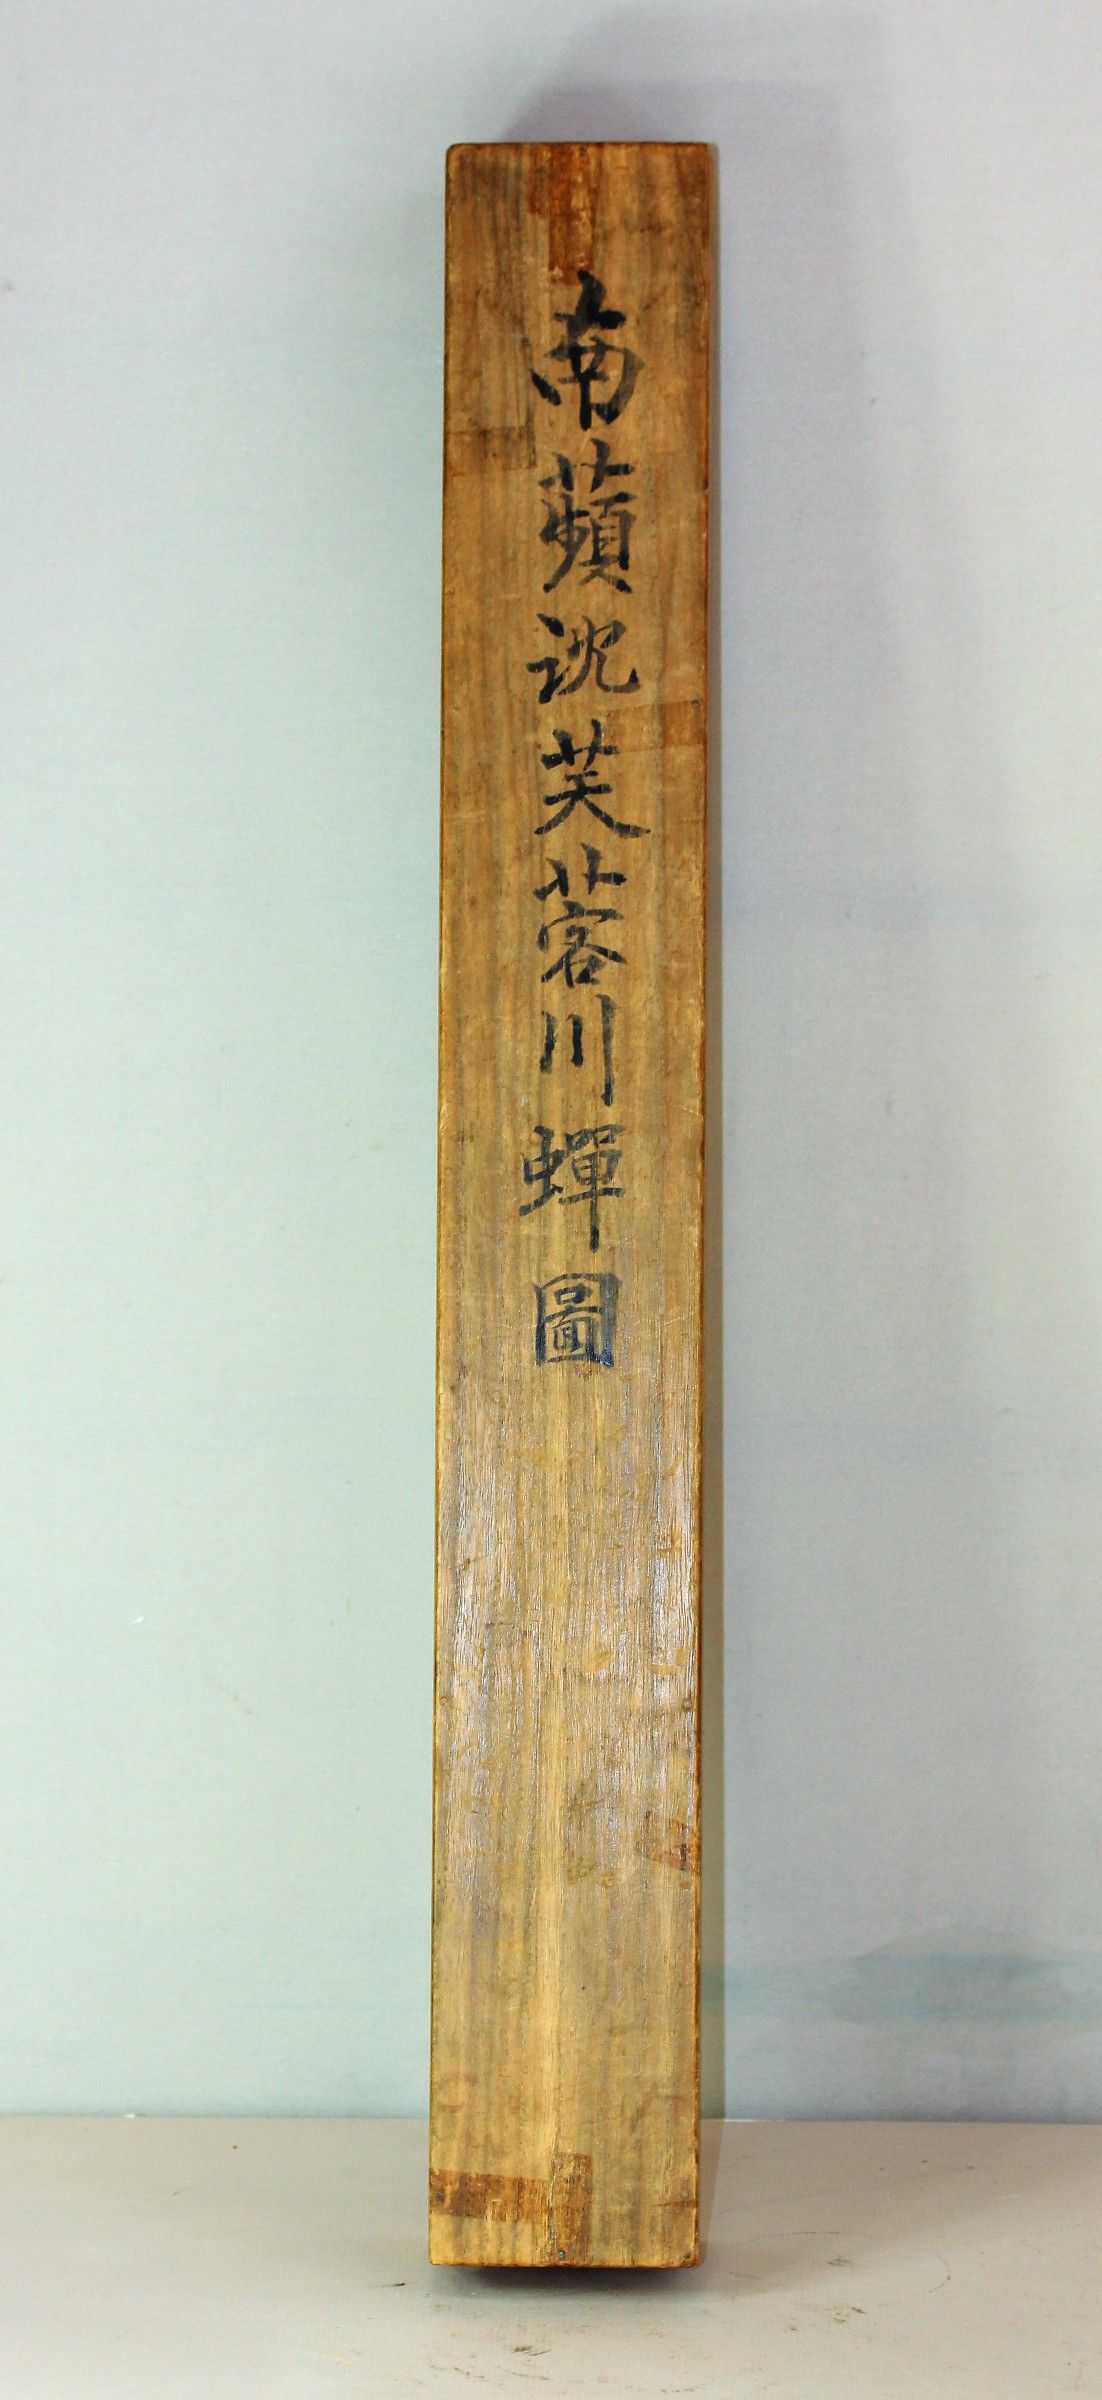 南蘋沈芙蓉川蟬圖